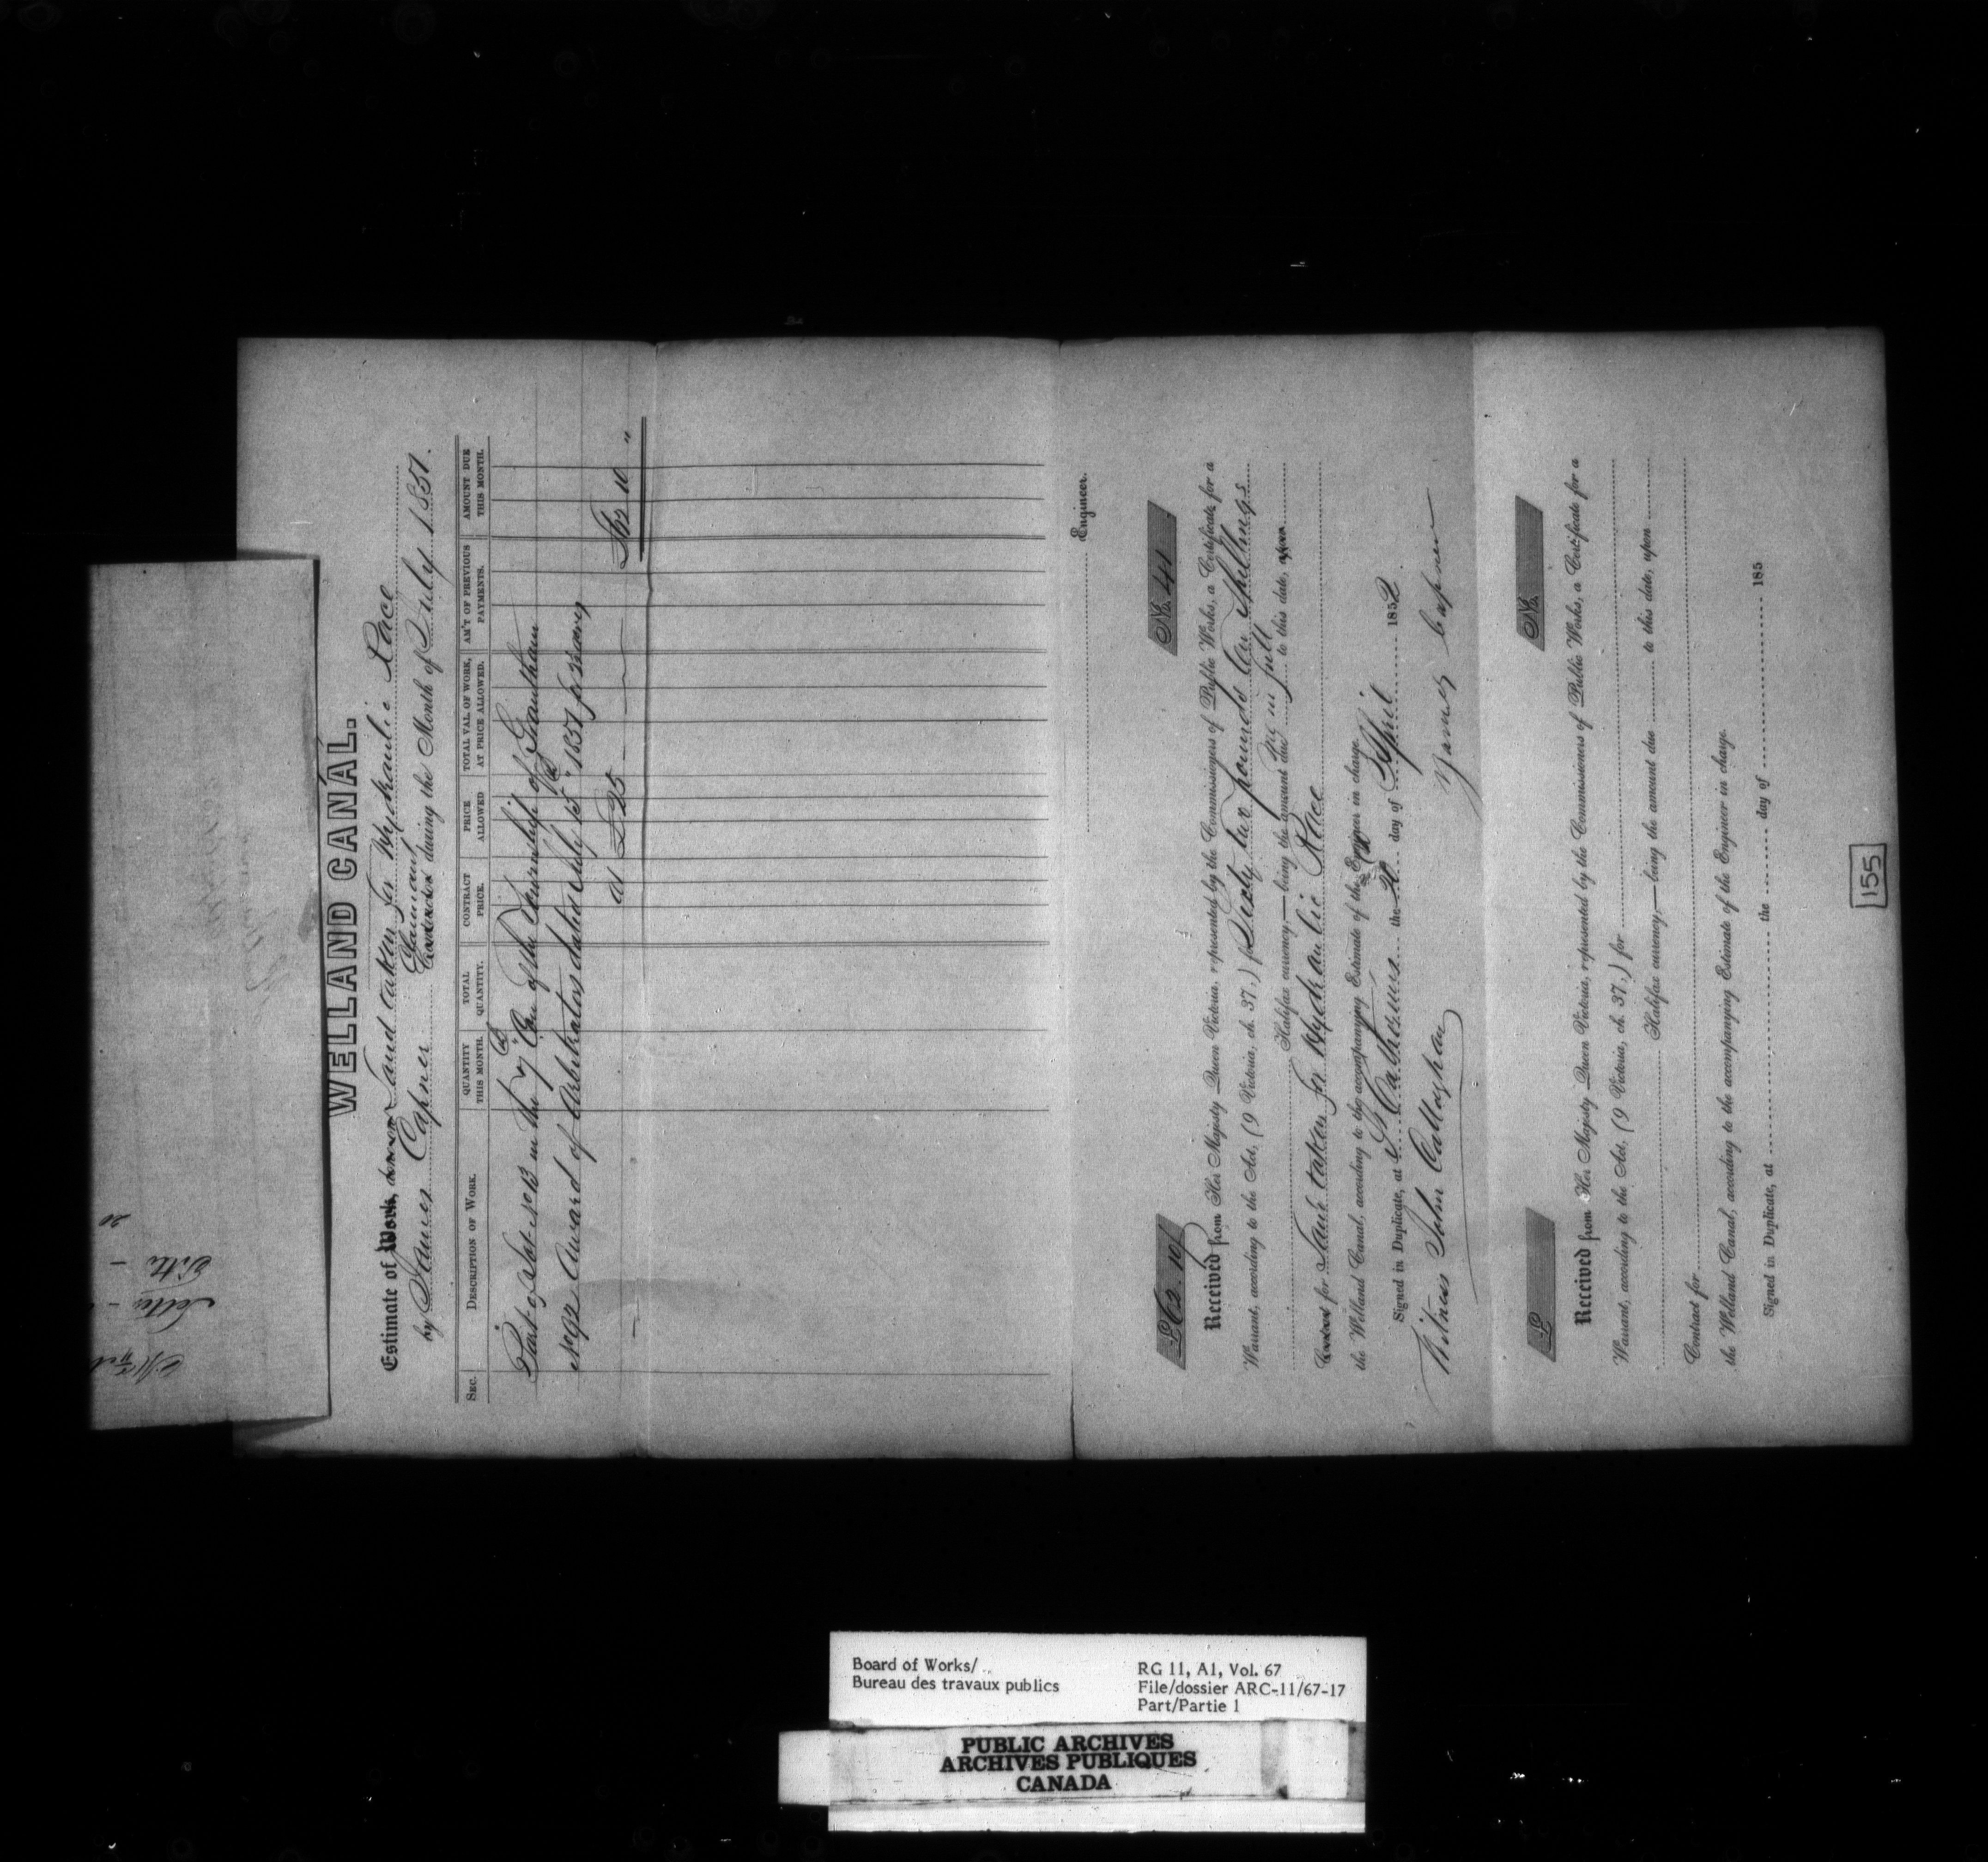 WELLAND CANAL.
Estimate of Work, done on Land taken for Hydraulic Race
Claimant
by James Capner Contractor during the Month of July 1851.
SEC. DESCRIPTION OF WORK. QUANTITY THIS MONTH. TOTAL QUANTITY. CONTRACT PRICE. PRICE ALLOWED TOTAL VAL. OF WORK, AT PRICE ALLOWED. AM'T OF PREVIOUS PAYMENTS. AMOUNT DUE THIS MONTH.
Part of Lot No 13 in the 7th Con of the Township of Grantham
No 92 Award of Arbitrators dated July 15th 1851
at £25 £62 10 "
Engineer.
£62. 10/ No. 41
Received from Her Majesty Queen Victoria, represented by the Commissioners of Public Works, a Certificate for a
Warrant, according to the Act, (9 Victoria, ch. 37.) for Sixty two pounds Ten Shillings
Halifax currency,—being the amount due me in full to this date, upon
Contract for Land taken for Hydraulic Race
the Welland Canal, according to the accompanying Estimate of the Engineer in charge.
Signed in Duplicate, at St Catherines the 20th day of April 1852
Witness John Callaghan James Capner
£ No.
Received from Her Majesty Queen Victoria, represented by the Commissioners of Public Works, a Certificate for a
Warrant, according to the Act, (9 Victoria, ch. 37.) for
Halifax currency,—being the amount due to this date, upon
Contract for
the Welland Canal, according to the accompanying Estimate of the Engineer in charge.
Signed in Duplicate, at the day of 185
155
Board of Works/
Bureau des travaux publics
RG 11, A1, Vol. 67
File/dossier ARC-11/67-17
Part/Partie 1
PUBLIC ARCHIVES
ARCHIVES PUBLIQUES
CANADA